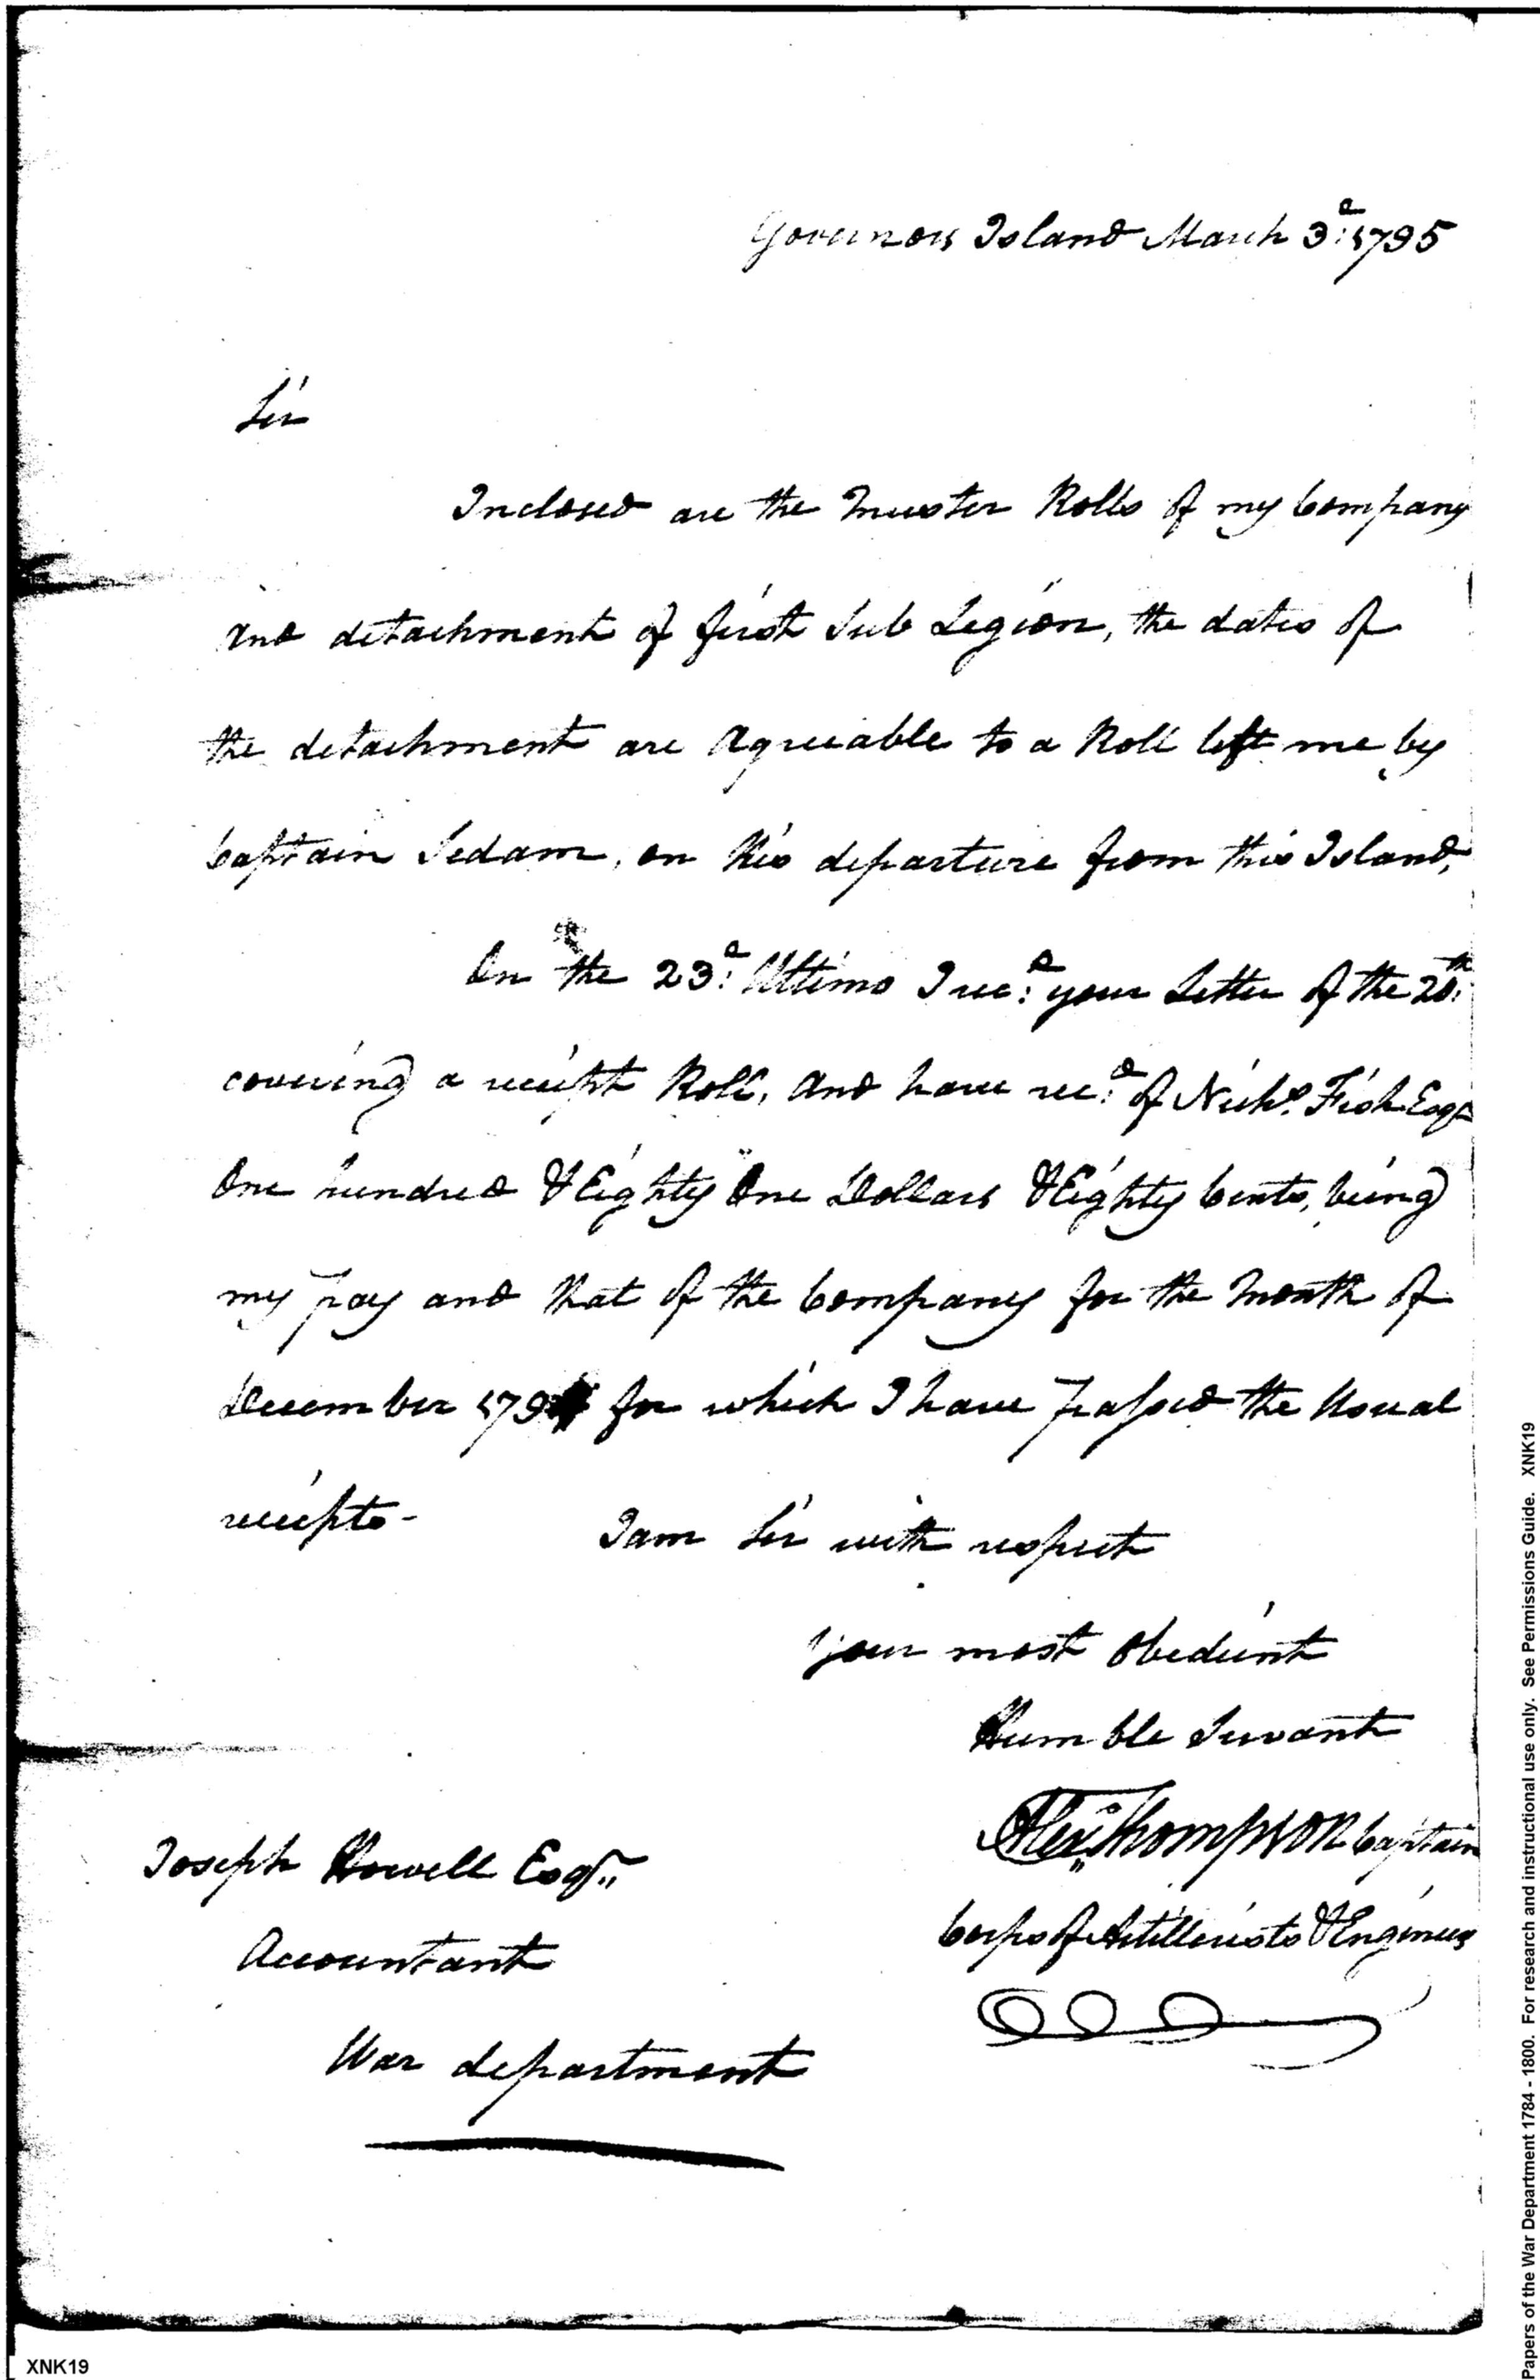 Governors Island March 3d: 1795
Sir
Inclosed are the Muster Rolls of my Company
and detachment of first Sub Legion, the dates of
the detachment are Agreeable to a Roll left me by
Captain Sedam, on his departure from this Island,
On the 23d: Ultimo I recd: your Letter of the 20th:
covering a receipt Roll, and have recd: of Nichs. Fish Esqr
One hundred & Eighty One Dollars & Eighty Cents, being
my pay and that of the Company for the Month of
December 1794 for which I have passed the Usual
receipts-
I am Sir with respect
your most Obedient
Humble Servant
Alexr Thompson Captain
Corps of Artillerists & Engineers
Joseph Howell Esqr"
Accountant
War department
Papers of the War Department 1784 - 1800. For research and instructional use only. See Permissions Guide. XNK19
XNK19